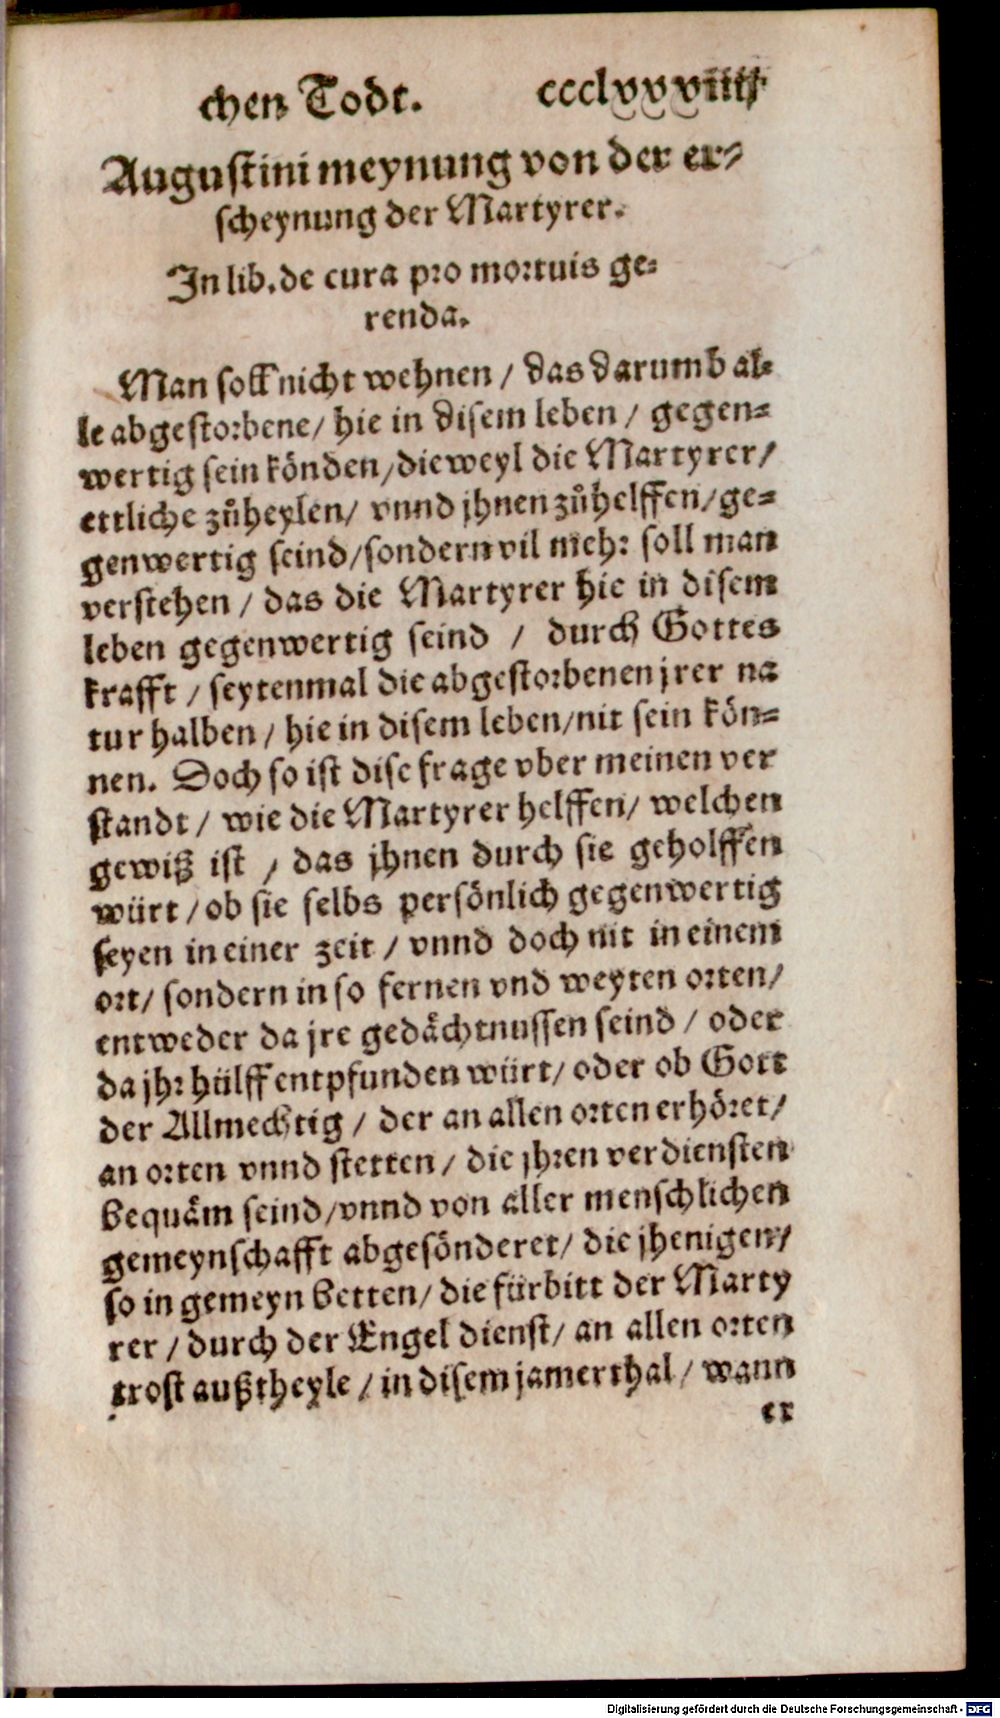 chen Todt. ccclxxxviiij
Augustini meynung von der er⸗
scheynung der Martyrer.
In lib. de cura pro mortuis ge⸗
renda.
Man soll nicht wehnen / das darumb al⸗
le abgestorbene / hie in disem leben / gegen⸗
wertig sein könden / dieweyl die Martyrer /
ettliche zůheylen / vnnd jhnen zůhelffen / ge⸗
genwertig seind / sondern vil mehr soll man
verstehen / das die Martyrer hie in disem
leben gegenwertig seind / durch Gottes
krafft / seytenmal die abgestorbenen jrer na
tur halben / hie in disem leben / nit sein kön⸗
nen. Doch so ist dise frage vber meinen ver
standt / wie die Martyrer helffen / welchen
gewiß ist / das jhnen durch sie geholffen
würt / ob sie selbs persönlich gegenwertig
seyen in einer zeit / vnnd doch nit in einem
ort / sondern in so fernen vnd weyten orten /
entweder da jre gedächtnussen seind / oder
da jhr hülff entpfunden würt / oder ob Gott
der Allmechtig / der an allen orten erhöret /
an orten vnnd stetten / die jhren verdiensten
bequäm seind / vnnd von aller menschlichen
gemeynschafft abgesönderet / die jhenigen /
so in gemeyn betten / die fürbitt der Marty
rer / durch der Engel dienst / an allen orten
trost außtheyle / in disem jamerthal / wann
er
Digitalisierung gefördert durch die Deutsche Forschungsgemeinschaft - DFG